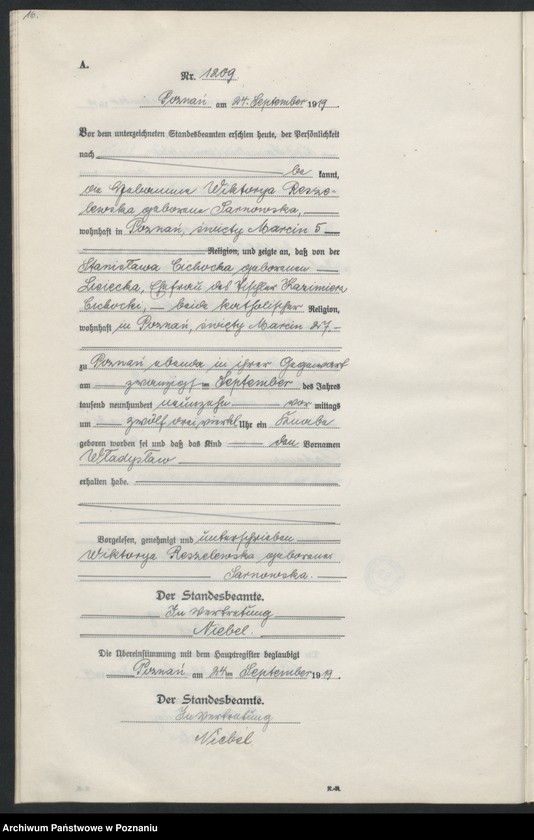 16.
A.
Nr. 1209
Poznań am 24. September 1919.
Vor dem unterzeichneten Standesbeamten erschien heute, der Persönlichkeit
nach
be kannt,
die Hebamme Wiktorya Resze-
lewska geborene Sarnowska,
wohnhaft in Poznań, święty Marcin 5
Religion, und zeigte an, daß von der
Stanisława Cichocka geborenen
Lisiecka, Ehefrau des Tischler Kazimierz
Cichocki, beide katholischer Religion,
wohnhaft in Poznań, święty Marcin 27
zu Poznań ebenda, in ihrer Gegenwart
am zwanzigst en September des Jahres
tausend neunhundert neunzehn vor mittags
um zwölf drei viertel Uhr ein Knabe
geboren worden sei und daß das Kind den Vornamen
Władysław
erhalten habe.
Vorgelesen, genehmigt und unterschrieben
Wiktorya Reszelewska geborene
Sarnowska.
Der Standesbeamte.
In Vertretung
Niebel.
Die Übereinstimmung mit dem Hauptregister beglaubigt
Poznań am 24ten September 1919.
Der Standesbeamte.
In Vertretung
Niebel.
Archiwum Państwowe w Poznaniu